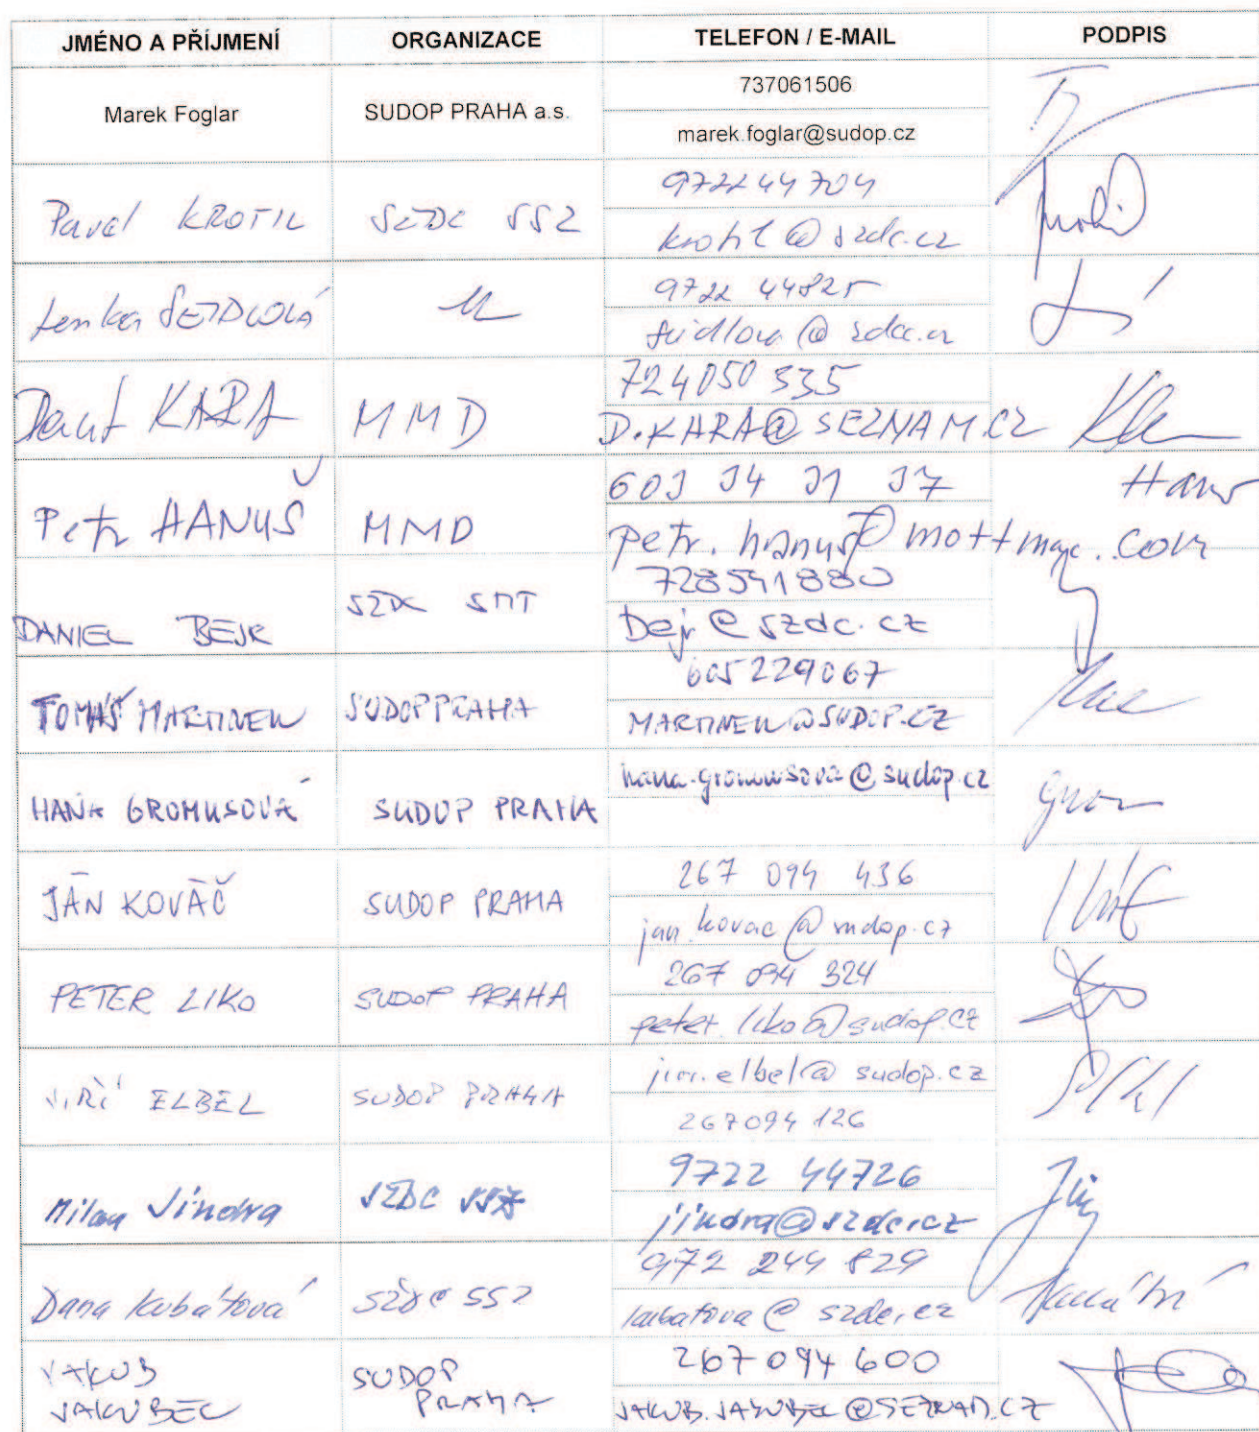 JMÉNO A PŘÍJMENÍ ORGANIZACE TELEFON / E-MAIL PODPIS
Marek Foglar SUDOP PRAHA a.s. 737061506
marek.foglar@sudop.cz
Pavel KROTIL SŽDC SSZ 972244704
krotil@szdc.cz
Lenka 9722 44825
KARA MMD 724050 335
D.KARA@SEZNAM.CZ
Petr HANUŠ MMD 603 34 31 37
petr.hanus@mottmac.com
DANIEL BEJR SŽDC 728541880
Bejr@szdc.cz
TOMÁŠ MARTINEK SUDOP PRAHA 605229067
MARTINEK@SUDOP.CZ
HANA GROMUSOVÁ SUDOP PRAHA hana.gromusova@sudop.cz
JÁN KOVÁČ SUDOP PRAHA 267 094 436
jan.kovac@sudop.cz
PETER LIKO SUDOP PRAHA 267 094 324
peter.liko@sudop.cz
JIŘÍ ELBEL SUDOP PRAHA jiri.elbel@sudop.cz
267094 126
Milan Jindra SŽDC SSZ 9722 44726
jindra@szdc.cz
Dana Kubátová SŽDC SSZ 972 244 829
kubatova@szdc.cz
JAKUB JAKUBEC SUDOP PRAHA 267 094 600
JAKUB.JAKUBEC@SEZNAM.CZ